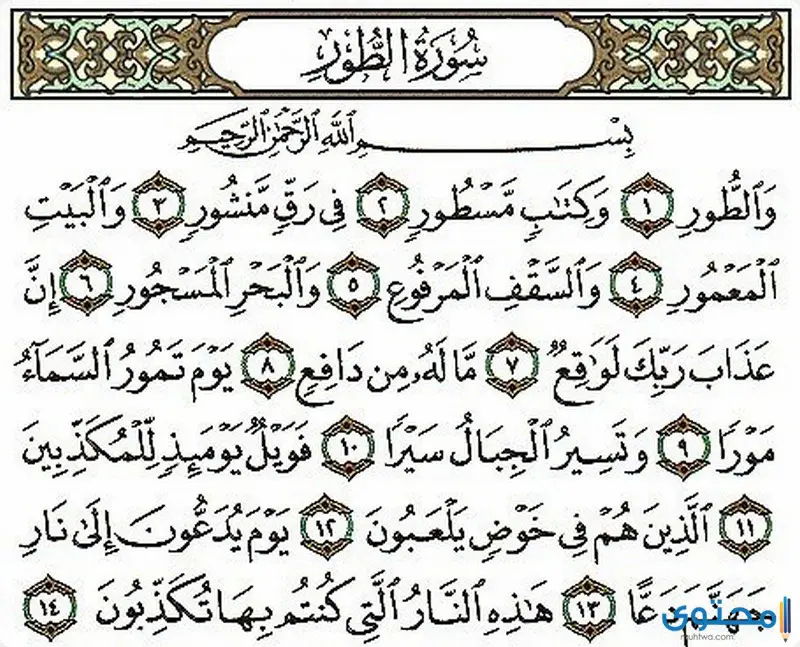 سُورَةُ الطُّورِ
بِسْمِ ٱللَّهِ ٱلرَّحْمَٰنِ ٱلرَّحِيمِ
وَٱلطُّورِ ١ وَكِتَٰبٍ مَّسْطُورٍ ٢ فِى رَقٍّ مَّنشُورٍ ٣ وَٱلْبَيْتِ
ٱلْمَعْمُورِ ٤ وَٱلسَّقْفِ ٱلْمَرْفُوعِ ٥ وَٱلْبَحْرِ ٱلْمَسْجُورِ ٦ إِنَّ
عَذَابَ رَبِّكَ لَوَٰقِعٌ ٧ مَّا لَهُۥ مِن دَافِعٍ ٨ يَوْمَ تَمُورُ ٱلسَّمَآءُ
مَوْرًا ٩ وَتَسِيرُ ٱلْجِبَالُ سَيْرًا ١٠ فَوَيْلٌ يَوْمَئِذٍ لِّلْمُكَذِّبِينَ
١١ ٱلَّذِينَ هُمْ فِى خَوْضٍ يَلْعَبُونَ ١٢ يَوْمَ يُدَعُّونَ إِلَىٰ نَارِ
جَهَنَّمَ دَعًّا ١٣ هَٰذِهِ ٱلنَّارُ ٱلَّتِى كُنتُم بِهَا تُكَذِّبُونَ ١٤
محتوى
muhtwa.com